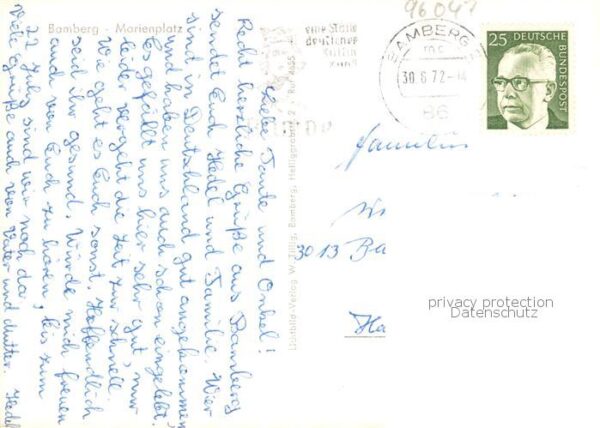 Bamberg - Marienplatz
Liebe Tante und Onkel!
Recht herzliche Grüße aus Bamberg
sendet Euch Hedel und Familie. Wir
sind in Deutschland gut angekommen
und haben uns auch schon eingelebt.
Es gefällt uns hier sehr gut, nur
leider vergeht die Zeit zu schnell.
Wie geht es Euch sonst. Hoffendlich
seid ihr gesund. Würde mich freuen
auch von Euch zu hören, bis zum
22 July sind wir noch da,
Viele Grüße auch von Vater und Mutter. Hedel
Lichtbild-Verlag W. Tillig, Bamberg, Heiliggrabstr. 2, Ruf 4655
eine Stätte
deutscher
Kultur
BAMBERG
30.6.72
86
96047
25 DEUTSCHE
BUNDESPOST
Familie
3013 Ba
Ha
privacy protection
Datenschutz